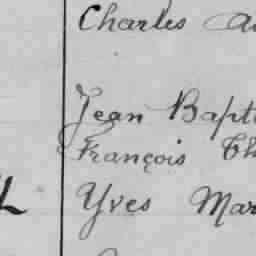 Charles
Jean Bapt
François Th
Yves Mar